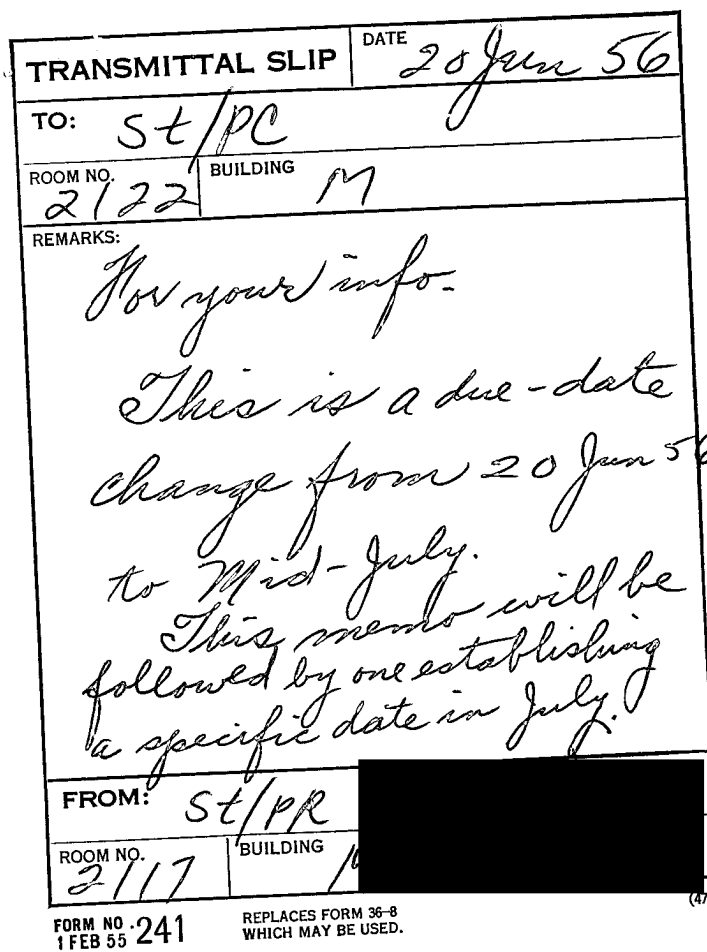 TRANSMITTAL SLIP
DATE
20 Jun 56
TO: St/PC
ROOM NO.
2122
BUILDING
M
REMARKS:
For your info-
This is a due-date
change from 20 Jun 56
to Mid-July.
This memo will be
followed by one establishing
a specific date in July.
FROM: St/PR
ROOM NO.
2117
BUILDING
FORM NO. 241
1 FEB 55
REPLACES FORM 36-8
WHICH MAY BE USED.
(47